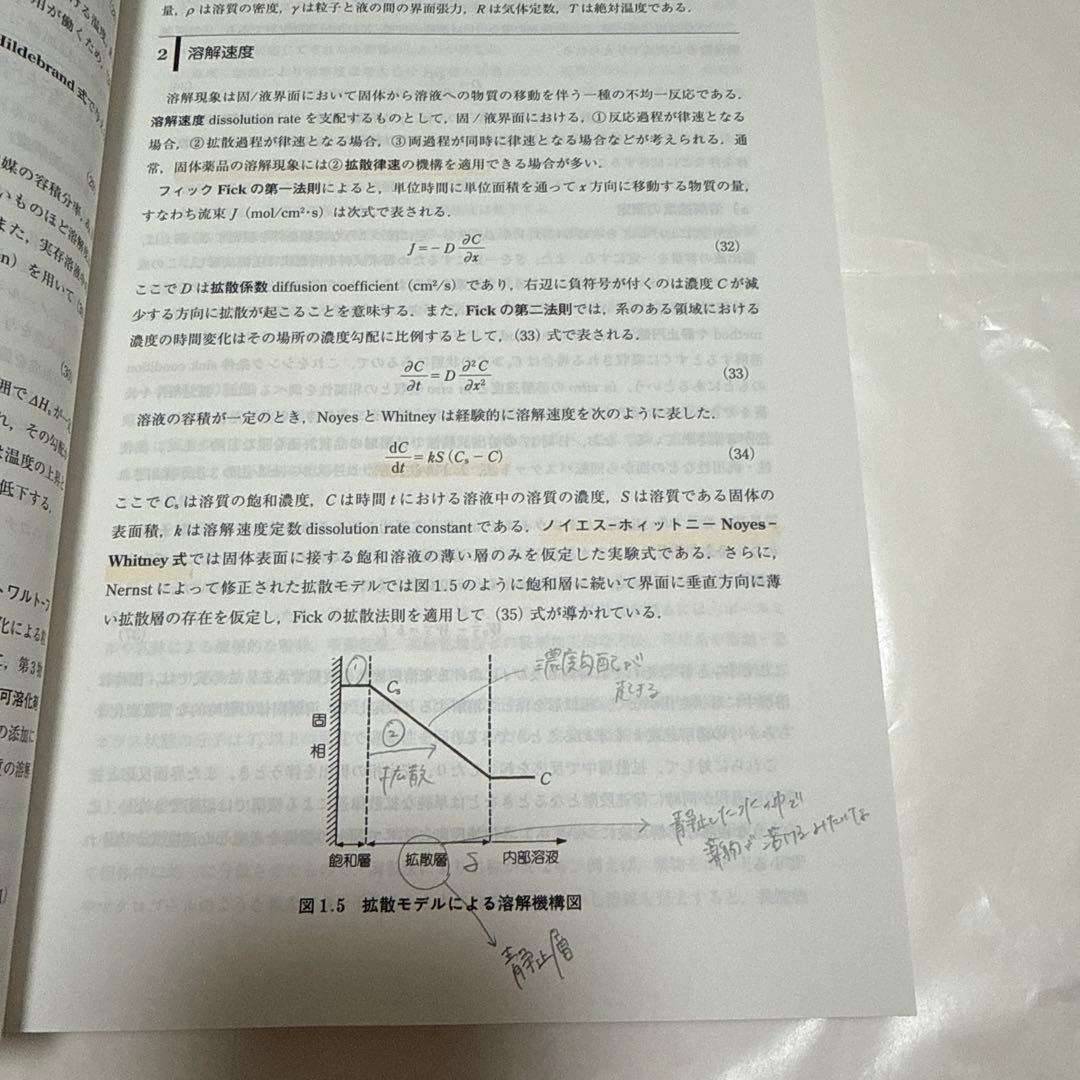 量,ρは溶質の密度,γは粒子と液の間の界面張力,Rは気体定数,Tは絶対温度である.
2 溶解速度
溶解現象は固/液界面において固体から溶液への物質の移動を伴う一種の不均一反応である.
溶解速度 dissolution rate を支配するものとして,固/液界面における,①反応過程が律速となる
場合,②拡散過程が律速となる場合,③両過程が同時に律速となる場合などが考えられる.通
常,固体薬品の溶解現象には②拡散律速の機構を適用できる場合が多い.
フィック Fick の第一法則によると,単位時間に単位面積を通って x 方向に移動する物質の量,
すなわち流束 J(mol/cm²·s)は次式で表される.
J=−D ∂C/∂x (32)
ここで D は拡散係数 diffusion coefficient(cm²/s)であり,右辺に負符号が付くのは濃度 C が減
少する方向に拡散が起こることを意味する.また,Fick の第二法則では,系のある領域における
濃度の時間変化はその場所の濃度勾配に比例するとして,(33)式で表される.
∂C/∂t=D ∂²C/∂x² (33)
溶液の容積が一定のとき,Noyes と Whitney は経験的に溶解速度を次のように表した.
dC/dt=kS(Cs−C) (34)
ここで Cs は溶質の飽和濃度,C は時間 t における溶液中の溶質の濃度,S は溶質である固体の
表面積,k は溶解速度定数 dissolution rate constant である.ノイエス−ホィットニー Noyes−
Whitney 式では固体表面に接する飽和溶液の薄い層のみを仮定した実験式である.さらに,
Nernst によって修正された拡散モデルでは図1.5のように飽和層に続いて界面に垂直方向に薄
い拡散層の存在を仮定し,Fick の拡散法則を適用して(35)式が導かれている.
①
Cs
濃度勾配が
生じる
固
相
②
拡散
C
静止した水中で
薬物が溶けるみたいな
飽和層 拡散層 δ 内部溶液
図1.5 拡散モデルによる溶解機構図
静止層
Hildebrand 式で
媒の容積分率,
いものほど溶解度
また,実存溶液
を用いて
囲で ΔHs が
れ,その勾配
は温度の上昇と
低下する.
化による
第3
可溶化剤
の添加に
質の溶解